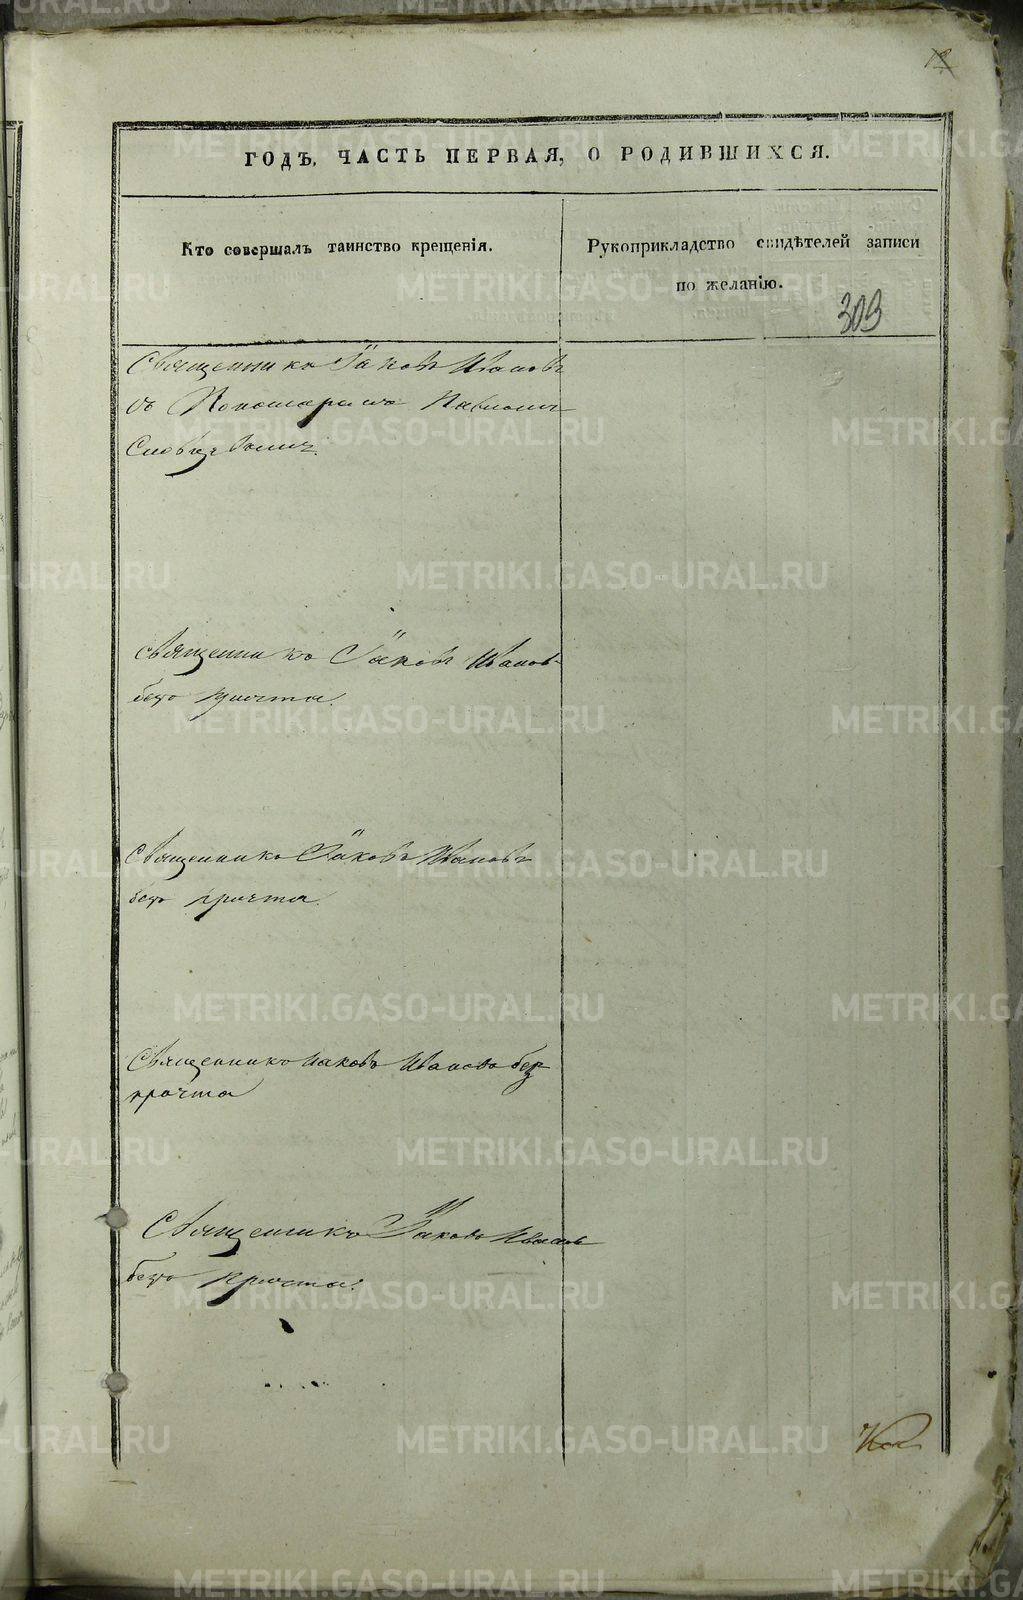 12
ГОДЪ. ЧАСТЬ ПЕРВАЯ, О РОДИВШИХСЯ.
Кто совершалъ таинство крещенія.
Рукоприкладство свидѣтелей записи
по желанію.
309
Священникъ Іаковъ Ивановъ
съ Пономаремъ Павломъ
Словцевымъ.
Священникъ Іаковъ Ивановъ
безъ причта.
Священникъ Іаковъ Ивановъ
безъ причта.
Священникъ Иаковъ Ивановъ без
причта
Священникъ Іаковъ Ивановъ
безъ причта.
METRIKI.GASO-URAL.RU